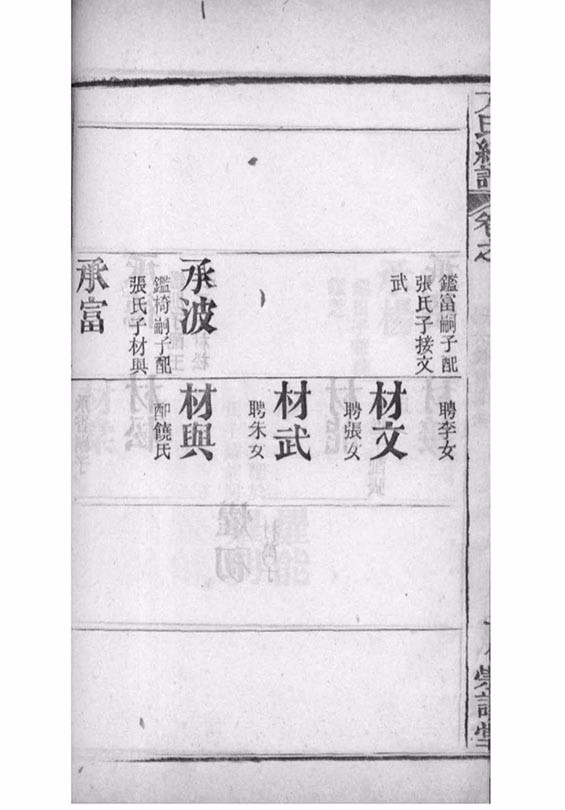 氏續譜
卷之
鑑富嗣子配
張氏子接文
武
承波
鑑椅嗣子配
張氏子材與
承富
聘李女
材文
聘張女
材武
聘朱女
材與
配饒氏
崇譜堂